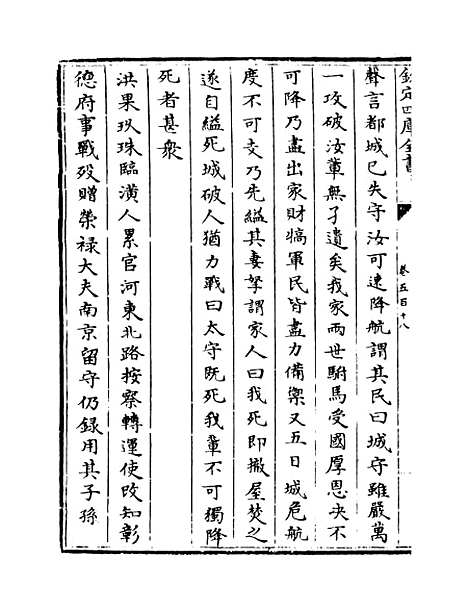 欽定四庫全書
卷五百十八
聲言都城已失守汝可速降航謂其民曰城守雖嚴萬
一攻破汝軰無孑遺矣我家兩世駙馬受國厚恩决不
可降乃盡出家財犒軍民皆盡力備禦又五日城危航
度不可支乃先縊其妻孥謂家人曰我死即撤屋焚之
遂自縊死城破人猶力戰曰太守既死我軰不可獨降
死者甚衆
洪果玖珠臨潢人累官河東北路按察轉運使改知彰
德府事戰殁贈榮禄大夫南京留守仍録用其子孫